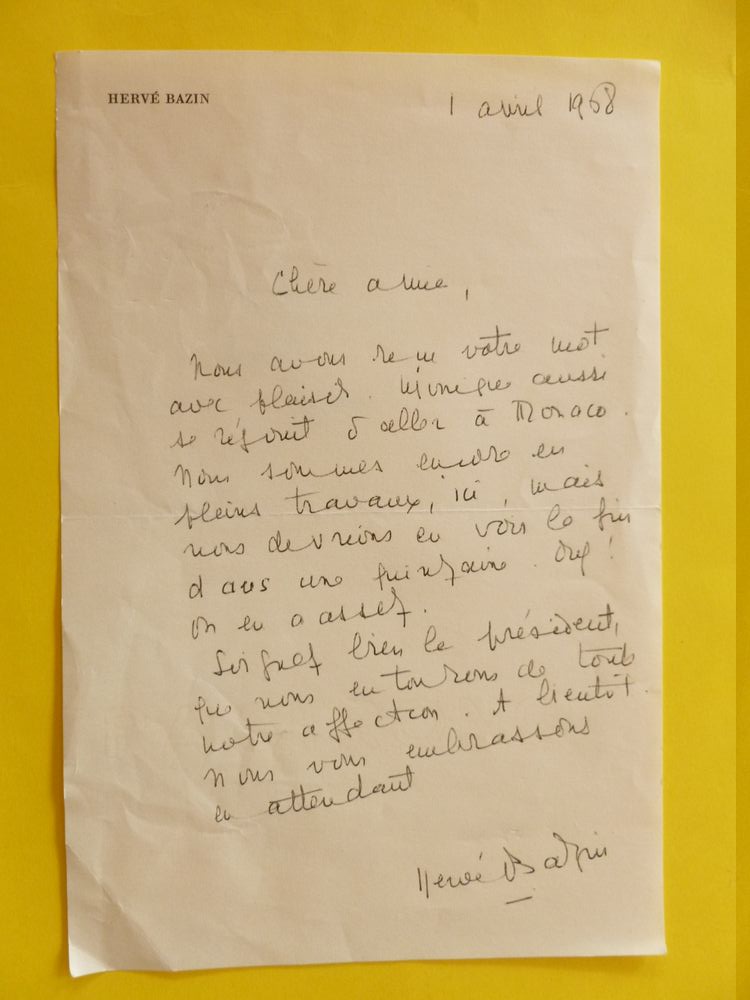 HERVÉ BAZIN
1 avril 1968
Chère amie,
Nous avons reçu votre mot
avec plaisir. Monique aussi
se réjouit d'aller à Monaco.
Nous sommes encore en
pleins travaux, ici, mais
nous devrions en voir la fin
dans une quinzaine. Ouf !
On en a assez.
Soignez bien le président,
que nous entourons de toute
notre affection. A bientôt.
Nous vous embrassons
en attendant
Hervé Bazin